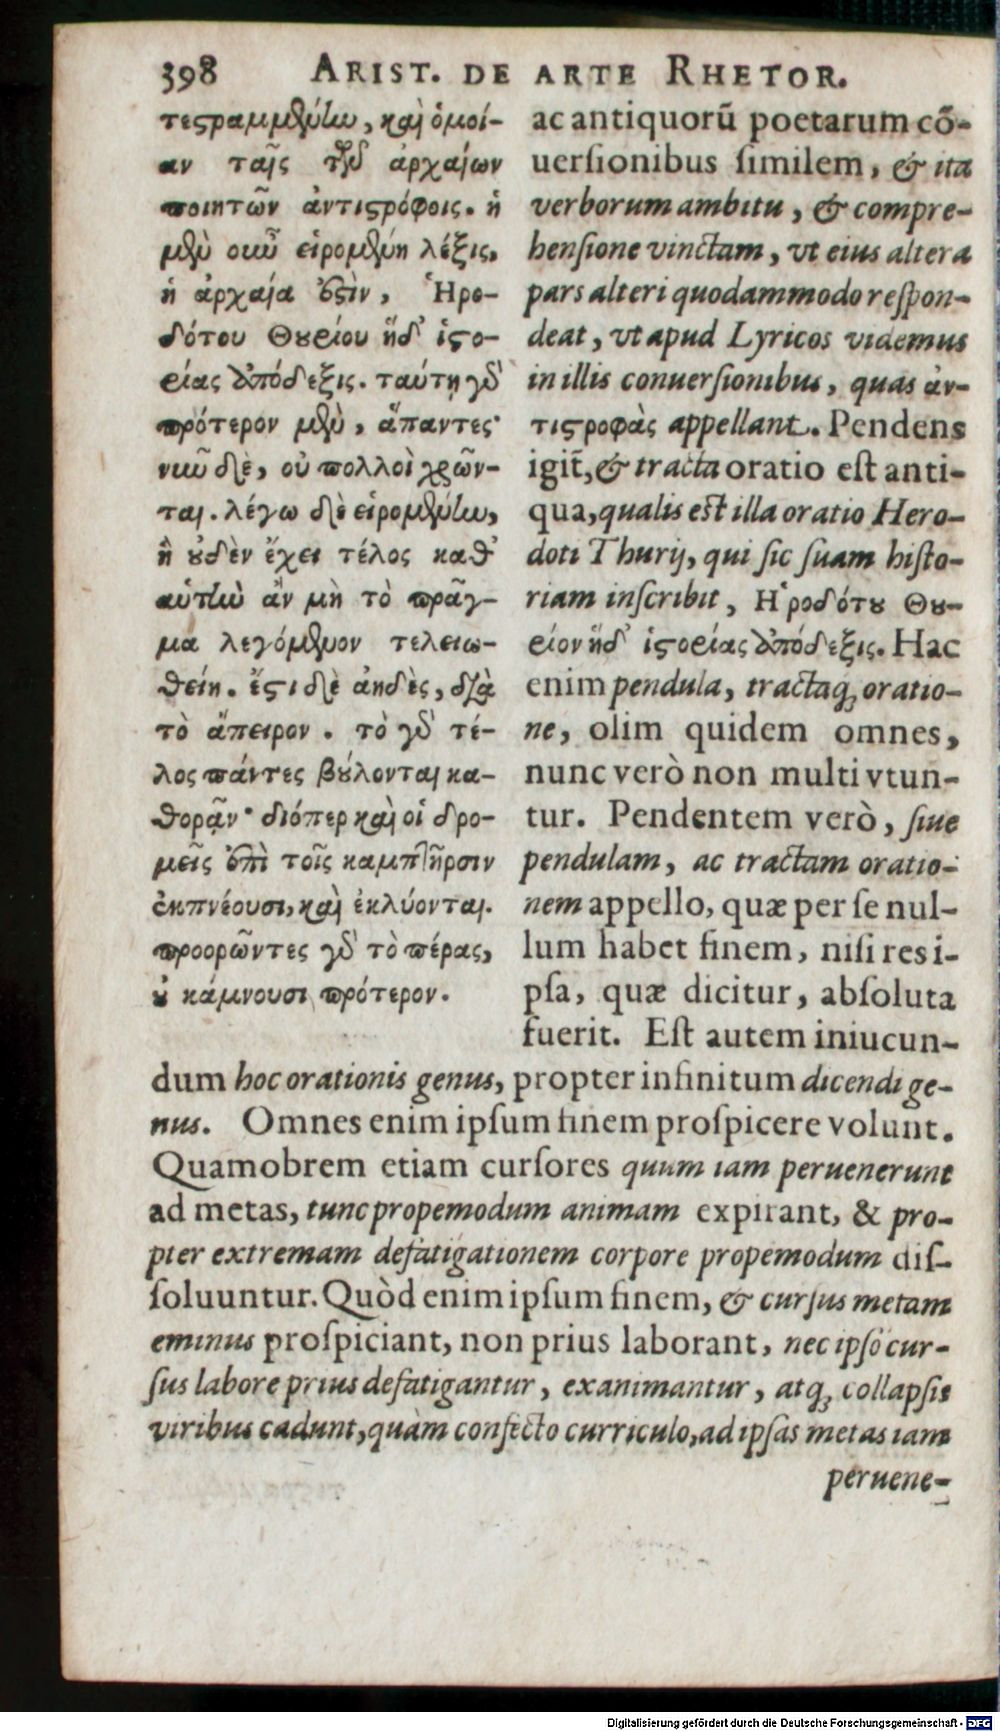 398 ARIST. DE ARTE RHETOR.
τεϛραμμένίω, καὶ ὁμοί-
αν ταῖς τῶν ἀρχαίων
ποιητῶν ἀντιϛρόφοις. ἡ
μὲν οὖν εἰρομένη λέξις,
ἡ ἀρχαία ἐϛὶν, Ἡρο-
δότου Θουρίου ἥδ᾽ ἱϛο-
ρίας ἀπόδεξις. ταύτῃ γὰρ
πρότερον μὲν, ἅπαντες·
νιῶ δὲ, οὐ πολλοὶ χρῶν-
ται. λέγω δὲ εἰρομένίω,
ἣ οὐδὲν ἔχει τέλος καθ᾽
αὑτίω ἂν μὴ τὸ πρᾶγ-
μα λεγόμενον τελειω-
θείη. ἔϛι δὲ ἀηδὲς, διὰ
τὸ ἄπειρον. τὸ γὰρ τέ-
λος πάντες βούλονται κα-
θορᾷν· διόπερ καὶ οἱ δρο-
μεῖς ἐπὶ τοῖς καμπτῆρσιν
ἐκπνέουσι, καὶ ἐκλύονται.
προορῶντες γὰρ τὸ πέρας,
οὐ κάμνουσι πρότερον.
ac antiquorũ poetarum cō-
uersionibus similem, & ita
verborum ambitu, & compre-
hensione vinctam, vt eius altera
pars alteri quodammodo respon-
deat, vt apud Lyricos videmus
in illis conuersionibus, quas ἀν-
τιϛροφὰς appellant. Pendens
igit̃, & tracta oratio est anti-
qua, qualis est illa oratio Hero-
doti Thurij, qui sic suam histo-
riam inscribit, Ἡροδότου Θου-
ρίον ἥδ᾽ ἱϛορίας ἀπόδεξις. Hac
enim pendula, tractaq; oratio-
ne, olim quidem omnes,
nunc verò non multi vtun-
tur. Pendentem verò, siue
pendulam, ac tractam oratio-
nem appello, quæ per se nul-
lum habet finem, nisi res i-
psa, quæ dicitur, absoluta
fuerit. Est autem iniucun-
dum hoc orationis genus, propter infinitum dicendi ge-
nus. Omnes enim ipsum finem prospicere volunt.
Quamobrem etiam cursores quum iam peruenerunt
ad metas, tunc propemodum animam expirant, & pro-
pter extremam defatigationem corpore propemodum dis-
soluuntur. Quòd enim ipsum finem, & cursus metam
eminus prospiciant, non prius laborant, nec ipso cur-
sus labore prius defatigantur, exanimantur, atq; collapsis
viribus cadunt, quàm confecto curriculo, ad ipsas metas iam
peruene-
Digitalisierung gefördert durch die Deutsche Forschungsgemeinschaft - DFG